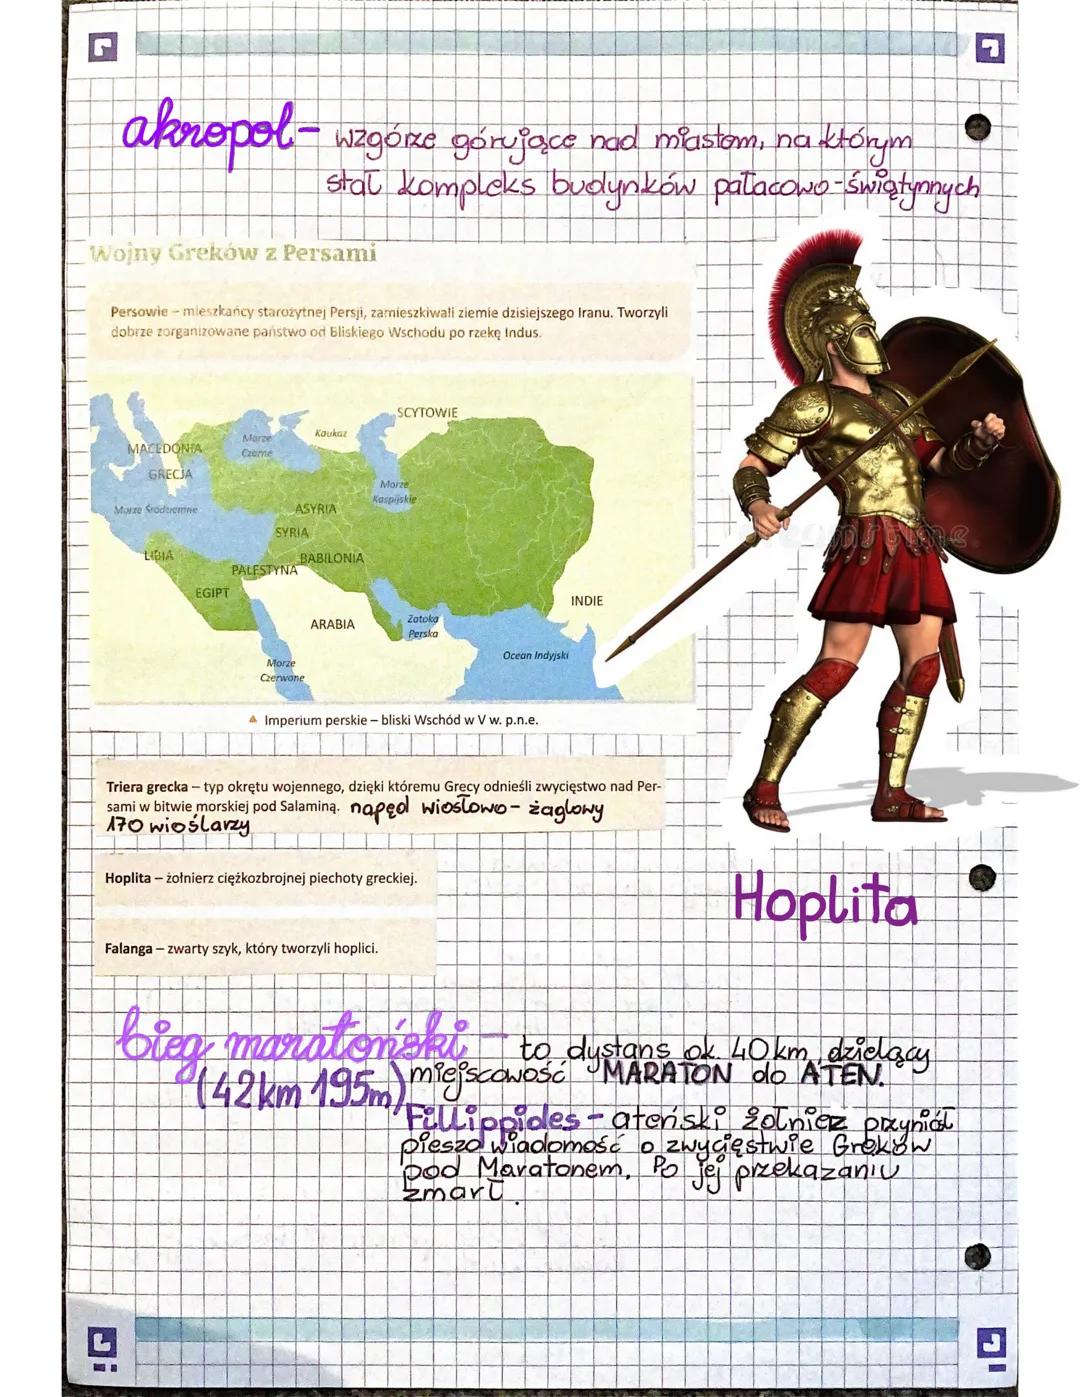 akropol - wzgórze górujące nad miastem, na którym
stał kompleks budynków pałacowo-świątynnych
Wojny Greków z Persami
Persowie – mieszkańcy starożytnej Persji, zamieszkiwali ziemie dzisiejszego Iranu. Tworzyli
dobrze zorganizowane państwo od Bliskiego Wschodu po rzekę Indus.
SCYTOWIE
MACEDONIA
Morze
Czarne
Kaukaz
GRECJA
Morze
Kaspijskie
Morze Śródziemne
ASYRIA
SYRIA
LIBIA
BABILONIA
PALESTYNA
EGIPT
INDIE
ARABIA
Zatoka
Perska
Ocean Indyjski
Morze
Czerwone
dreamstime.
Imperium perskie – bliski Wschód w V w. p.n.e.
Triera grecka – typ okrętu wojennego, dzięki któremu Grecy odnieśli zwycięstwo nad Per-
sami w bitwie morskiej pod Salaminą. napęd wiosłowo - żaglowy
170 wioślarzy
Hoplita – żołnierz ciężkozbrojnej piechoty greckiej.
Hoplita
Falanga – zwarty szyk, który tworzyli hoplici.
bieg maratoński - to dystans ok. 40km dzielący
(42km 195m) miejscowość MARATON do ATEN.
Fillippides - ateński żołnierz przyniósł
pieszo wiadomość o zwycięstwie Greków
pod Maratonem. Po jej przekazaniu
zmarł.